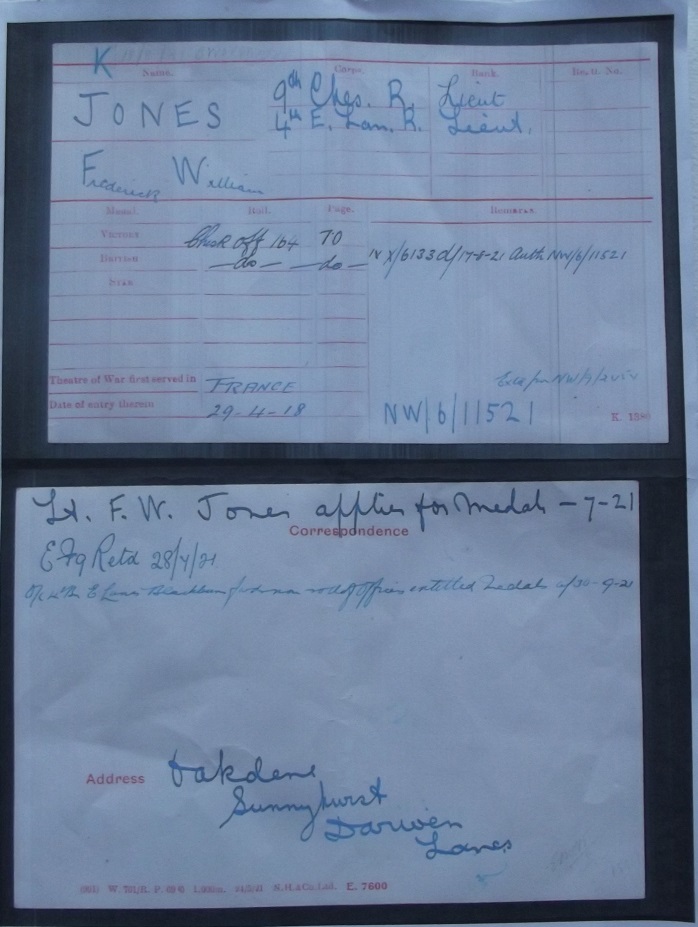 K
Name. Corps. Rank. Regtl. No.
JONES 9th Ches. R. Lieut
4th E. Lan. R. Lieut.
Frederick William
Medal. Roll. Page. Remarks.
Victory Off 164 70
British —do— —do— IV X/6133d/17-8-21 Auth NW/6/11521
Star
Theatre of War first served in FRANCE
Date of entry therein 29-4-18
NW/6/11521 K. 138
Lt. F. W. Jones applies for medals -7-21
Correspondence
EF9 Retd 28/4/21
E Lancs Blackburn roll of Officers entitled Medals 30-9-21
Address Oakdene
Sunnyhurst
Darwen
Lancs
N.H.&Co.Ltd. E. 7600